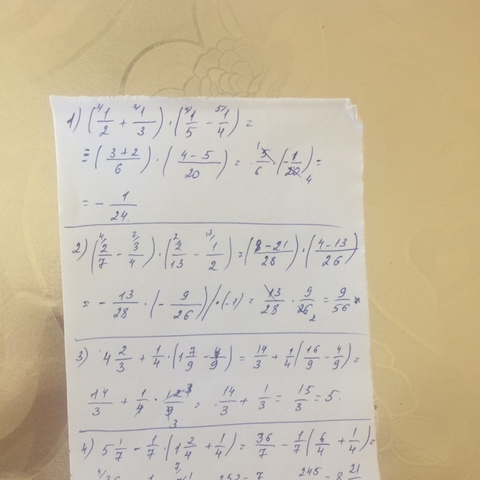 1) (³⁄1/2 + ²⁄1/3) · (⁴⁄1/5 − ⁵⁄1/4) =
= ((3+2)/6) · ((4−5)/20) = 5/6 · (−1/20) =
= − 1/24.
2) (2/7 − 3/4) · (2/13 − 1/2) = ((8−21)/28) · ((4−13)/26)
= − 13/28 · (− 9/26) / · (−1) = 13/28 · 9/26 = 9/56
3) 4 2/3 + 1/4 · (1 7/9 − 4/9) = 14/3 + 1/4 (16/9 − 4/9) =
14/3 + 1/4 · 12/9 = 14/3 + 1/3 = 15/3 = 5.
4) 5 1/7 − 1/7 · (1 2/4 + 1/4) = 36/7 − 1/7 (6/4 + 1/4) =